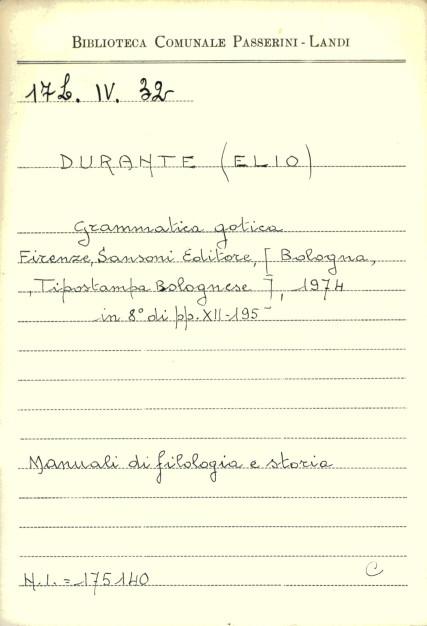 BIBLIOTECA COMUNALE PASSERINI - LANDI
17 L. IV. 32
DURANTE (ELIO)
Grammatica gotica
Firenze, Sansoni Editore, [ Bologna,
, Tipostampa Bolognese ], 1974
in 8° di pp. XII-195
Manuali di filologia e storia
N.I. = 175140
C